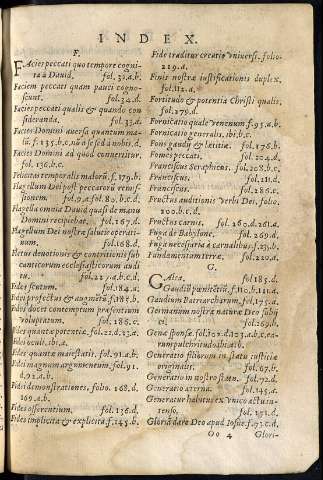 INDEX.
F.
FAcies peccati quo tempore cogni-
ta à Dauid. fol. 31.a.b.
Faciem peccati quam pauci cogno-
scunt. fol. 32.d.
Facies peccati qualis & quando con
sideranda. fol. 33.a.
Factos Domini auersa quantum ma-
Facies Domini ad quod conuertitur.
fol. 136.b.c.
Felicitas temporalis malorū. f. 179.b.
Flagellum Dei post peccatorū remis-
sionem. fol. 9.a. fol. 89.b.c.d.
Flagella omnia Dauid quasi de manu
Domini recipiebat. fol. 167.d.
Flagellum Dei nostræ salutis operati-
uum. fol. 168.d.
Fletus deuotionis & contritionis sub
canticorum ecclesiasticorum audi
tu. fol. 227.a.b.c.d.
Fides scutum. fol. 184.a.
Fidei profectus & augmētū. fol. 187.b.
Fidei docet contemptum præsentium
voluptatum. fol. 186.c.
Fides quantæ potentiæ. fol. 22.d. 23.a.
Fidei oculi. ibi.a.
Fides quantæ maiestatis. fol. 91.a.b.
Fidei magnum argumentum. fol. 91.
d. 92.a.b.
Fidei demonstrationes. folio. 168.d.
169.a.b.
Fides offerentium. fol. 136.d.
Fides implicita & explicita. f. 145.b.
Fide traditur creatio vniuersi. folio.
219.d.
Finis nostræ iustificationis duplex.
fol. 112.a.
Fortitudo & potentia Christi qualis.
fol. 279.d.
Fornicatio quale venenum. f. 95.a.b.
Fornicatio generalis. ibi.b.c.
Fons gaudij & lætitiæ. fol. 176.b.
Fomes peccati. fol. 204.d.
Franciscus Seraphicus. fol. 208.b.c.
Franciscus. fol. 211.d.
Franciscus. fol. 286.c.
Fructus auditionis verbi Dei. folio.
200.b.c.d.
Fructus carnis. fol. 260.d. 261.a.
Fuga de Babylone. fol. 269.d.
Fuga necessaria è carnalibus. f. 273.b.
Fundamentum terræ. fol. 220.d.
G.
GAlea. fol. 185.d.
Gaudiū pœnitētiū. f. 110.b. 111.a.
Gaudium Patriarcharum. fol. 175.a.
Germanum nostræ naturæ Deo subij
ci. fol. 269.b.
Genæ sponsæ. fol. 302.d. 303.a.b.c.ea-
rum pulchritudo ibi.a.b.
Generatio filiorum in statu iustitiæ
originalis. fol. 67.b.
Generatio in nostro statu. fol. 72.d.
Generatio æterna. fol. 145.a.
Generatur habitus ex vnico actu in-
tenso. fol. 251.d.
Gloriā dare Deo apud Iosue. f. 93.c.d.
Oo 4 Glori-